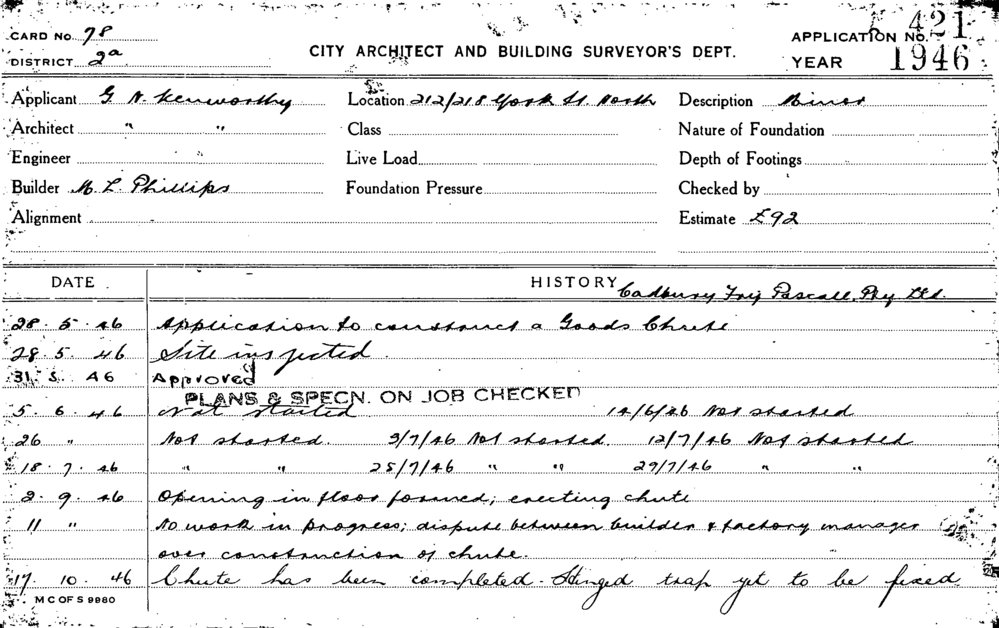 CARD No. 78
DISTRICT 2a
CITY ARCHITECT AND BUILDING SURVEYOR'S DEPT.
APPLICATION No. 421
YEAR 1946
Applicant G. N. Kenworthy Location 212/218 York St. North Description Minor
Architect " " Class Nature of Foundation
Engineer Live Load Depth of Footings
Builder M. L. Phillips Foundation Pressure Checked by
Alignment Estimate £92
DATE HISTORY Cadbury Fry Pascall, Pty Ltd.
28. 5. 46 Application to construct a Goods Chute
28. 5. 46 Site inspected
31. 5. 46 Approved
PLANS & SPECN. ON JOB CHECKED
5. 6. 46 Not started 14/6/46 Not started
26 " Not started. 3/7/46 Not started. 12/7/46 Not started
18. 7. 46 " " 25/7/46 " " 29/7/46 " "
2. 9. 46 Opening in floor formed; erecting chute
11 " No work in progress; dispute between builder & factory manager
over construction of chute.
17. 10. 46 Chute has been completed - Hinged trap yet to be fixed
M C OF S 9980